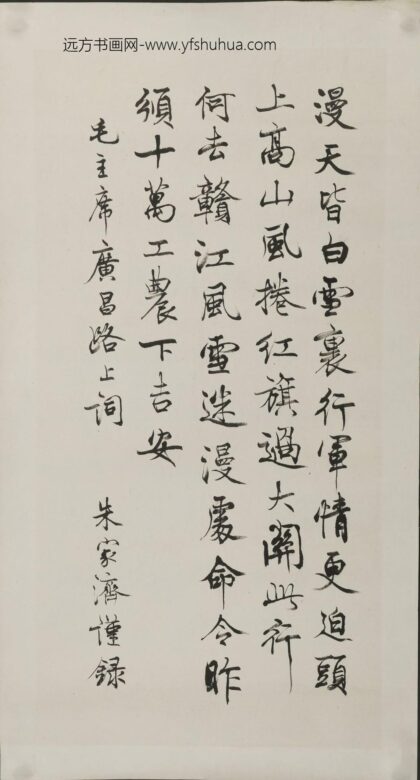 远方书画网-www.yfshuhua.com
漫天皆白雪裏行軍情更迫頭
上高山風捲紅旗過大關此行
何去贛江風雪迷漫處命令昨
頒十萬工農下吉安
毛主席廣昌路上詞 朱家濟謹録